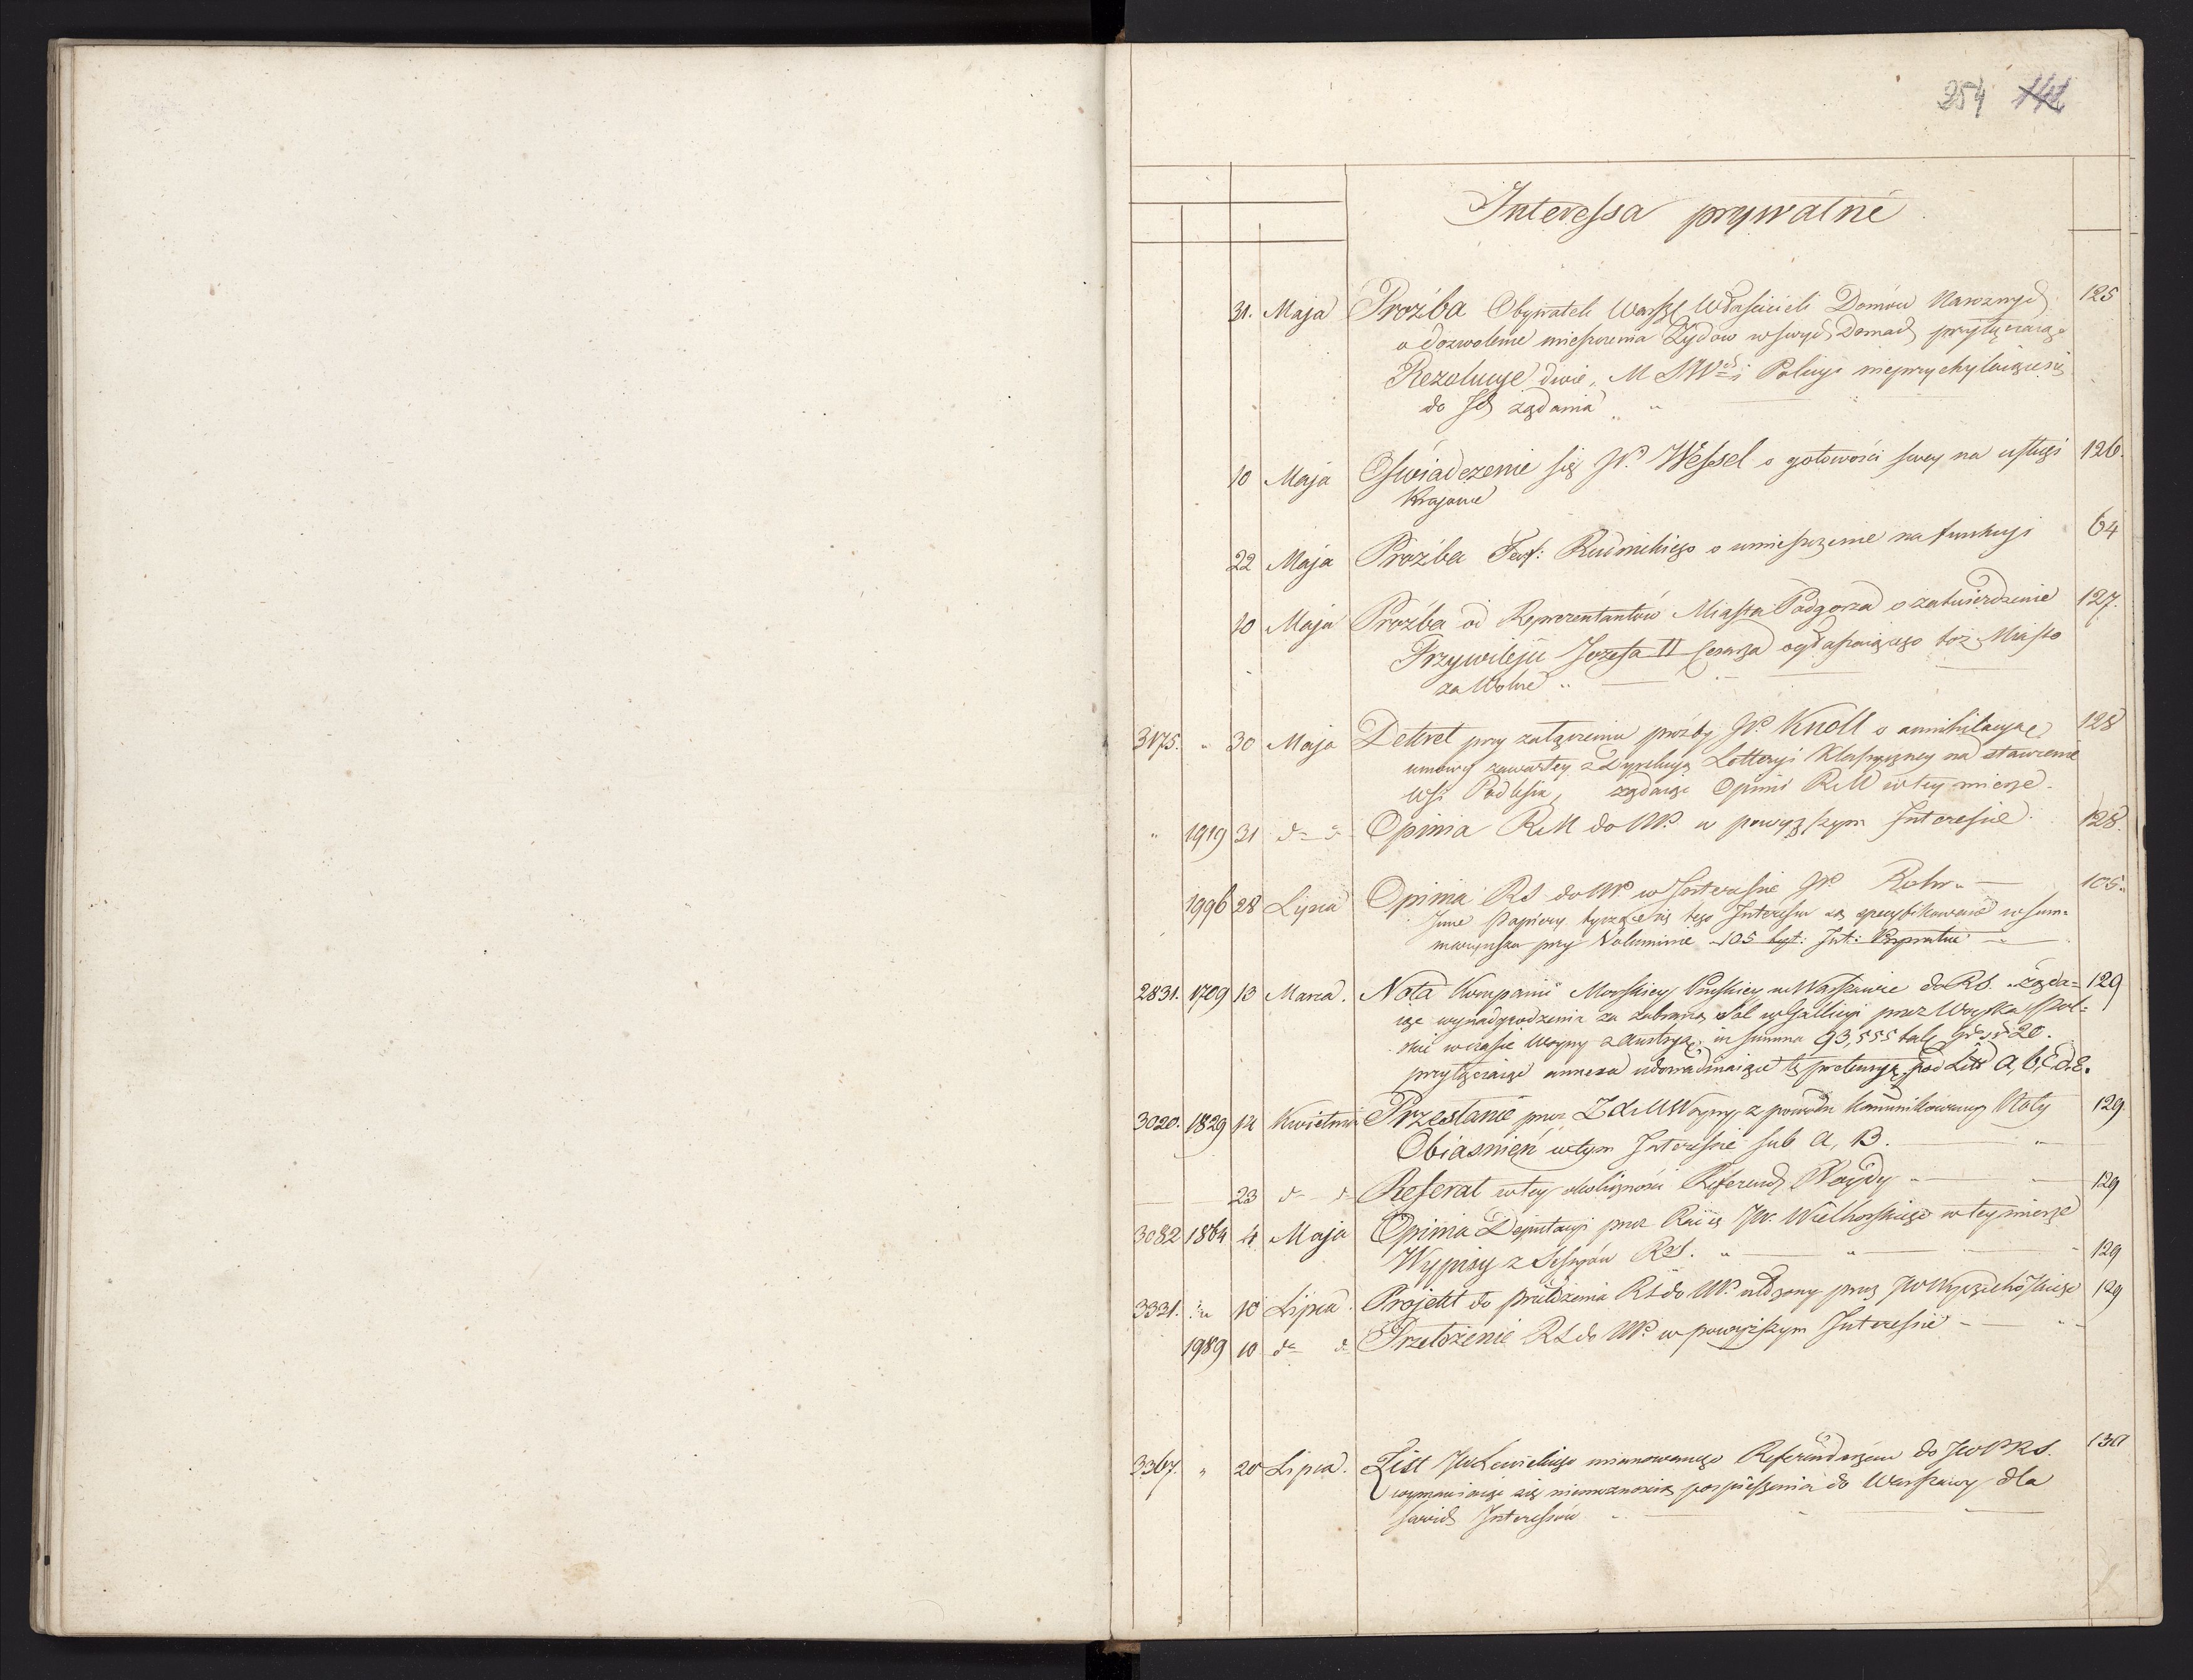 254
Interessa prywatne
31. Maja Prozba Obywateli Warsz Właścicieli Domów Narożnych 125
o dozwolenie mieszczenia Żydów w swych Domach przyłączaiąc
Rezolucye dwie, M SW i Policyi nieprzychylaiące się
do Ich żądania
10 Maja Oświadczenie się JP. Wessel o gotowości swey na usługi 126.
Krajowe
22 Maja Prozba o umieszczenie na funkcyi 64
10 Maja Prozba od Reprezentantów Miasta Podgorza o zatwierdzenie 127.
Przywileju Jozefa II Cesarza ogłaszaiącego toż Miasto
za Wolne
3175. " 30 Maja Dekret przy załączeniu prozby JP. Knoll o annihilacyą 128
umowy zawartey z Dyrekcyą Lotteryi Klassyczney na
Wsi Podlesia, żądaiąc Opinii RM w tey mierze.
" 1919 31 do do Opinia RM do NP. w powyższym Interesie 128.
1996 28 Lipca Opinia RS do NP w Interessie JP. Rohr 105.
Inne Papiery tyczące się tego Interesu są specyfikowane w sum=
maryuszu przy Voluminie 105 tyt: Int: Prywatne
2831. 1709 13 Marca. Nota Kompanii Morskiey Pruskiey w Warszawie do RS. żąda= 129
iąc wynadgrodzenia za zabraną Sól w Gallicyi przez Woyska Pol=
skie w czasie Woyny z Austryą, in summa 93,555 tal 20.
przyłączaiąc annexa udowadniaiące tę pretensyą pod Litt a, b, c, d, e.
3020. 1829 12 Kwietnia Przesłanie przez ZdM Woyny, z powodu kommunikowaney Noty 129
Obiaśnień w tym Interessie sub A, B.
23 do do Referat w tey okoliczności Referend Woydy 129
3082 1864 4 Maja Opinia Deputacyi przez Radcę JW. Wielhorskiego w tey mierze
Wypisy z Sessyów RS. 129
3331. 10 Lipca. Projekt do przełożenia RS do NP. ułożony przez JW Wyczechowskiego 129
1989 10 do do Przełożenie RS do NP. w powyższym Interessie
3367. " 20 Lipca. List JW Lewickiego mianowanego Referendarzem do JWPRS. 130
wymawiaiąc się niemożnością pospieszenia do Warszawy dla
swoich Interessów